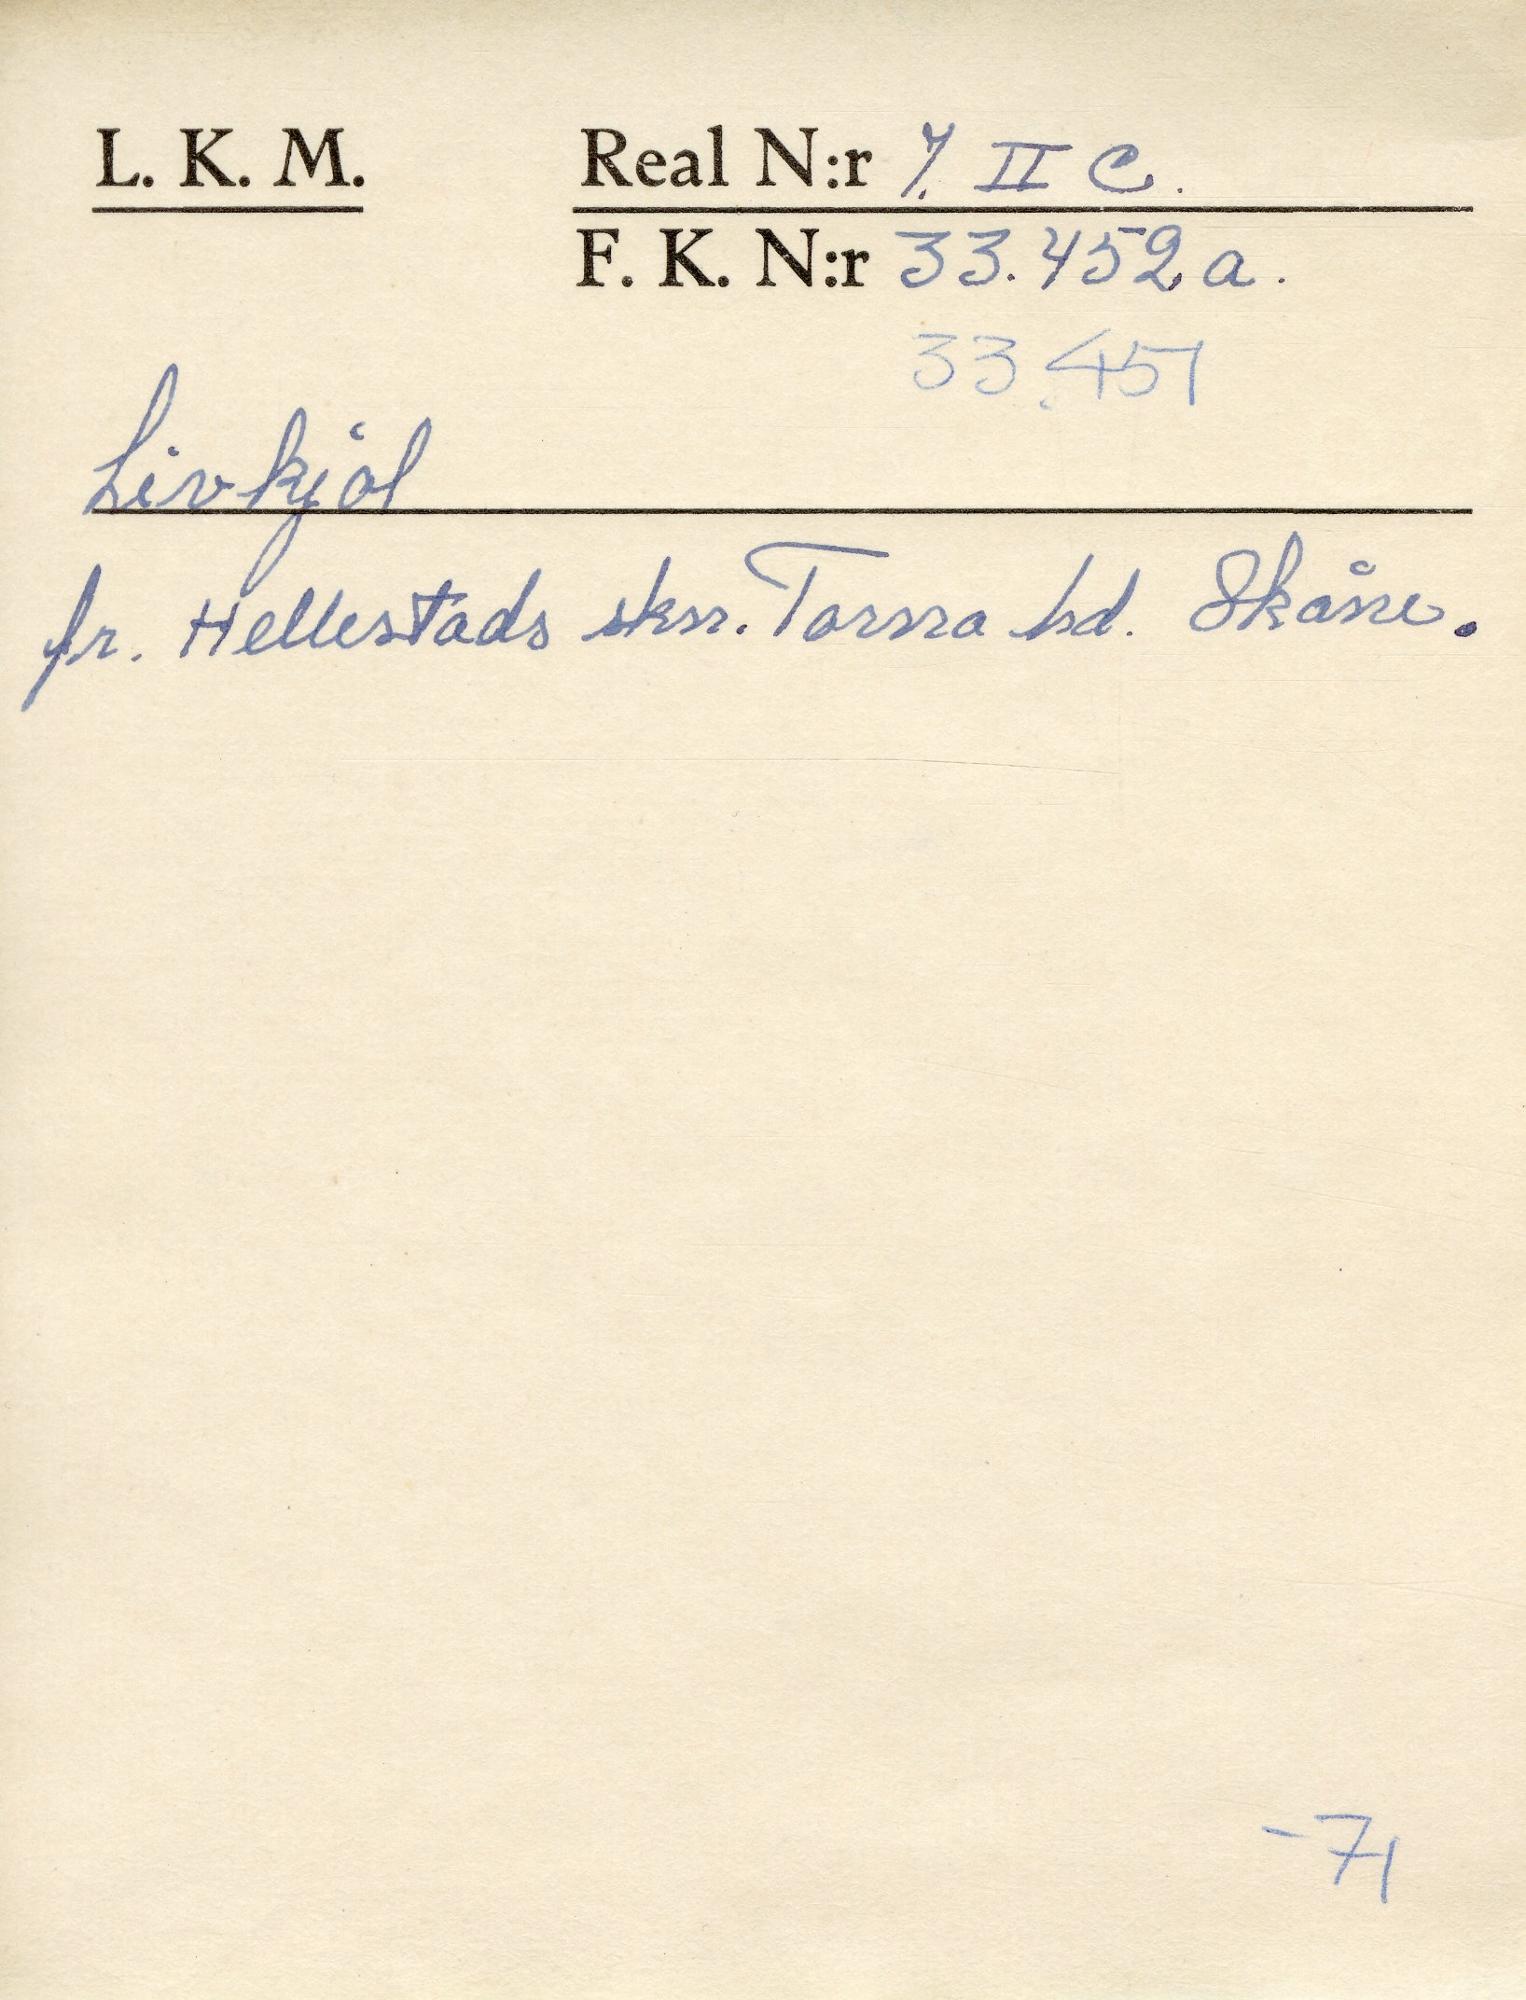 L. K. M. Real N:r 7. II C.
F. K. N:r 33.452 a.
33.451
Livkjol
fr. Hellestads skn. Torna hd. Skåne.
-71